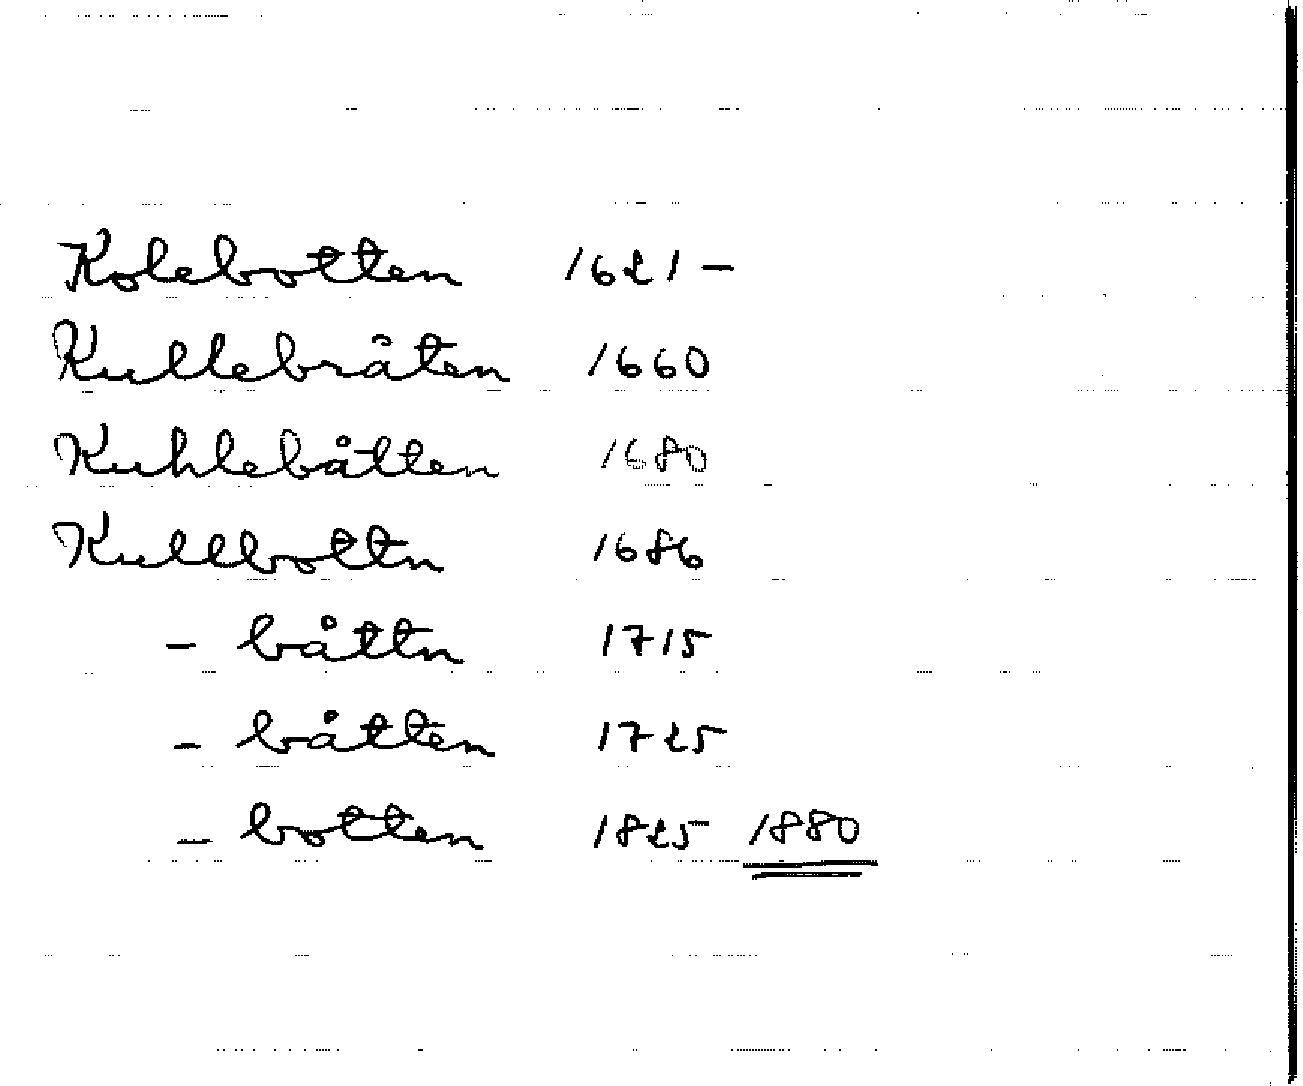 Kolebotten 1621 –
Kullebråten 1660
Kuhlebåtten 1680
Kullbottn 1686
– båttn 1715
– båtten 1725
– botten 1825 1880